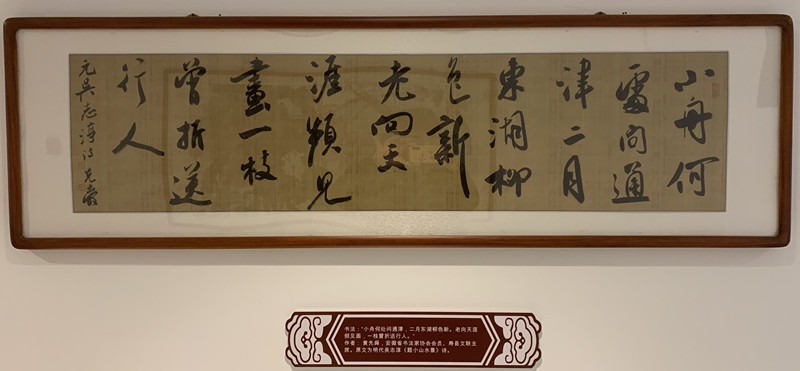 小舟何
處問通
津二月
東湖柳
色新
老向天
涯頻見
畫一枝
曾折送
行人
元吴志淳诗
书法：“小舟何处问通津，二月东湖柳色新。老向天涯
频见画，一枝曾折送行人。”
作者：黄先，安徽省书法家协会会员、寿县文联主
席。原文为明代吴志淳《题小山水景》诗。